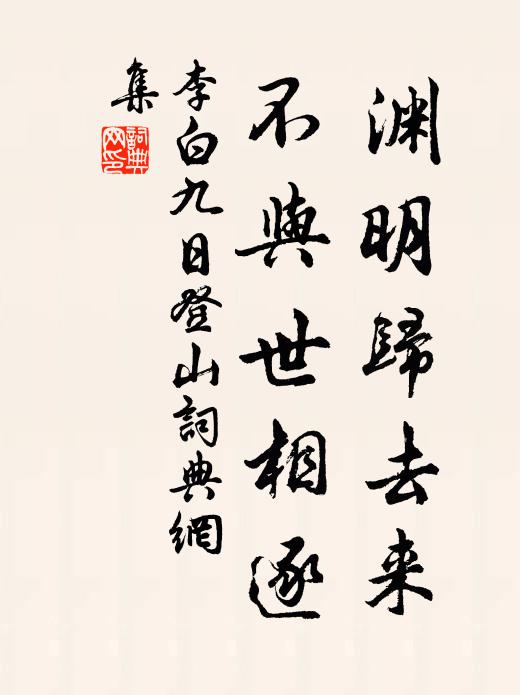 渊明歸去来
不與世相逐
李白九日登山詞典網
集
詞典
网印